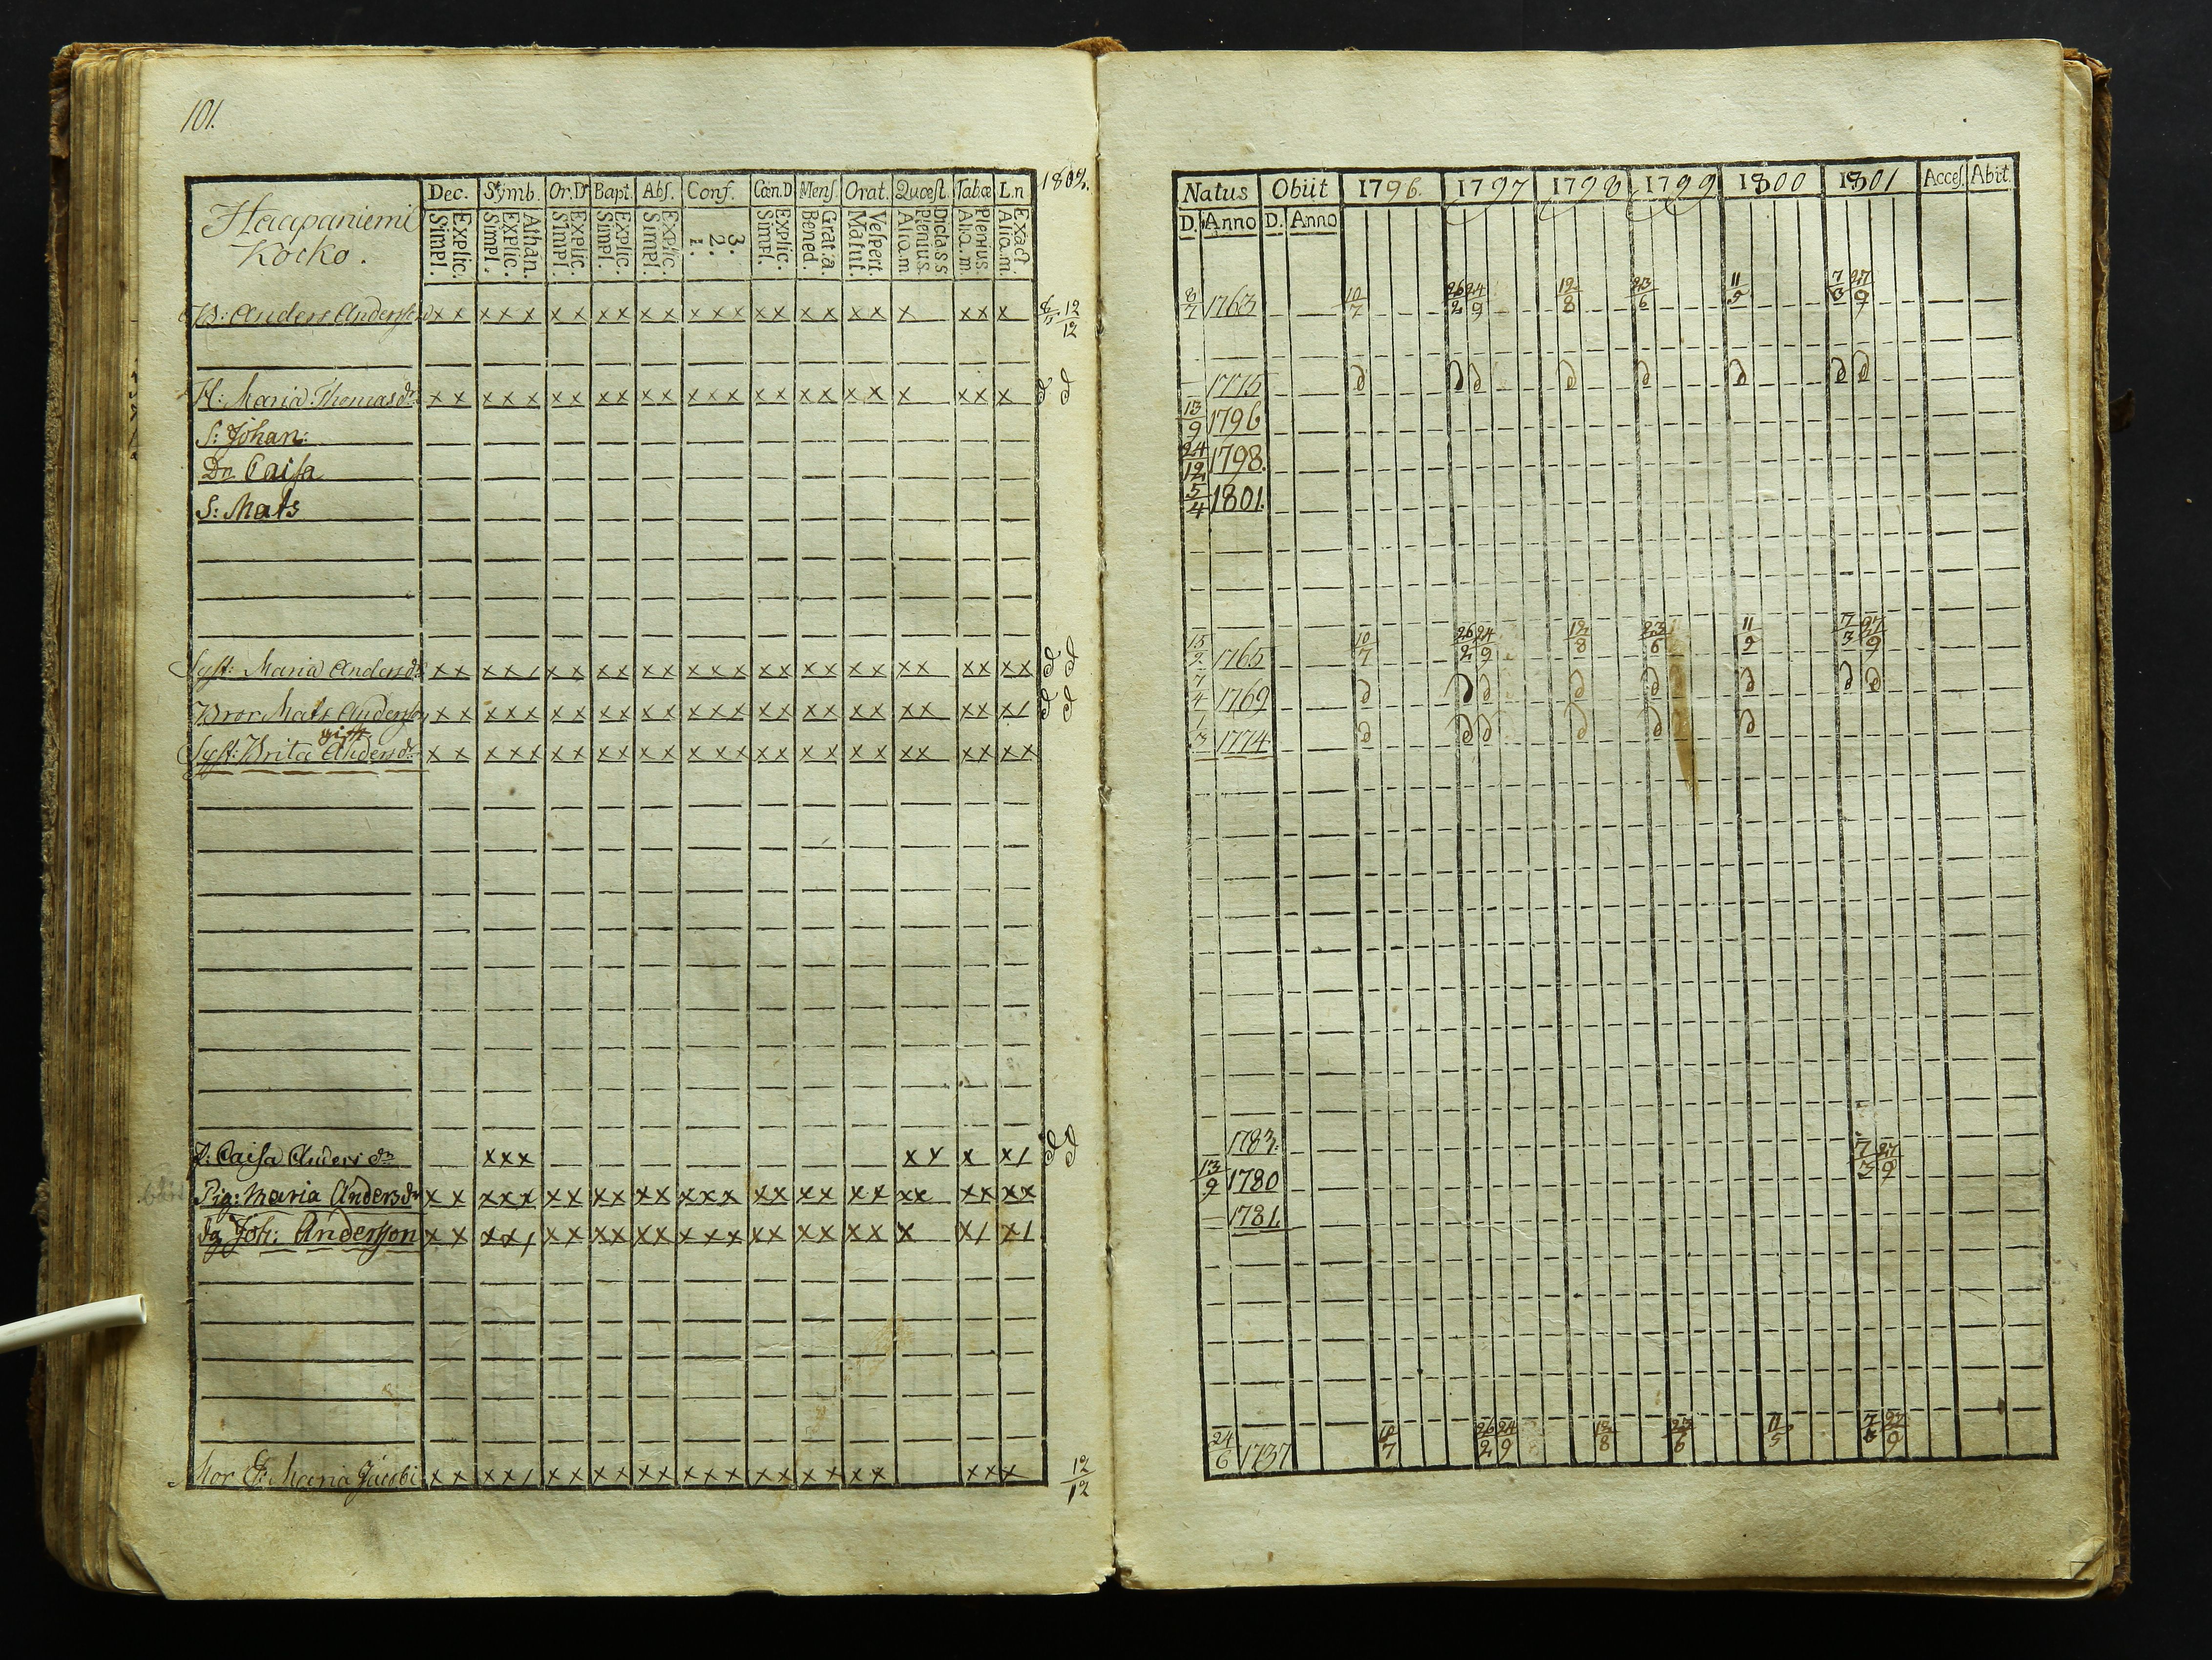 101.
Haapaniemi
Kocko.
Dec. Symb. Or.D Bapt. Abſ. Conf. Cœn.D Menſ. Orat. Quœſt. Tabœ L.n 1802.
Explic. Simpl. Athan. Explic. Simpl. Explic. Simpl. Explic. Simpl. Explic. Simpl. 3. 2. 1. Explic. Simpl. Grat.a. Bened. Veſpert. Matut. Dicta s s Plenius. Aliq.m Plenius. Aliq.m. Exact. Aliq.m.
B: Anders Andersson x x x x x x x x x x x x x x x x x x x x x x x x x 12/12
H: Maria Thomasdr x x x x x x x x x x x x x x x x x x x x x x x x x ∂ ∂
S: Johan:
Dr Caisa
S: Mats
Syst: Maria Andersdr x x x x / x x x x x x x x x x x x x x x x x x x x x x x ∂ ∂
Bror Mats Andersson x x x x x x x x x x x x x x x x x x x x x x x x x x / ∂ ∂
gift
Syst: Brita Andersdr x x x x x x x x x x x x x x x x x x x x x x x x x x x
Caisa Anders dr x x x x x x x / ∂ ∂
Pig: Maria Andersdr x x x x x x x x x x x x x x x x x x x x x x x x x x x
Joh: Andersson x x x x / x x x x x x x x x x x x x x x x x x / x /
Mor E: Maria Jacobi x x x x / x x x x x x x x x x x x x x x x x x x 12/12
Natus Obiit 1796. 1797 1798 1799 1800 1801 Acceſ. Abit.
D. Anno D. Anno
8/7 1763 10/7 26/2 24/9 12/8 23/6 11/5 7/3 27/9
1775 ∂ ∂ ∂ ∂ ∂ ∂ ∂ ∂
13/9 1796
24/12 1798.
5/4 1801.
15/2 1765 10/7 26/2 24/9 12/8 23/6 11/5 7/3 27/9
7/4 1769 ∂ ∂ ∂ ∂ ∂ ∂ ∂ ∂
1/3 1774 ∂ ∂ ∂ ∂ ∂ ∂
1783. 7/3 27/9
13/9 1780
1781
24/6 1737 10/7 26/2 24/9 12/8 23/6 11/5 7/3 27/9